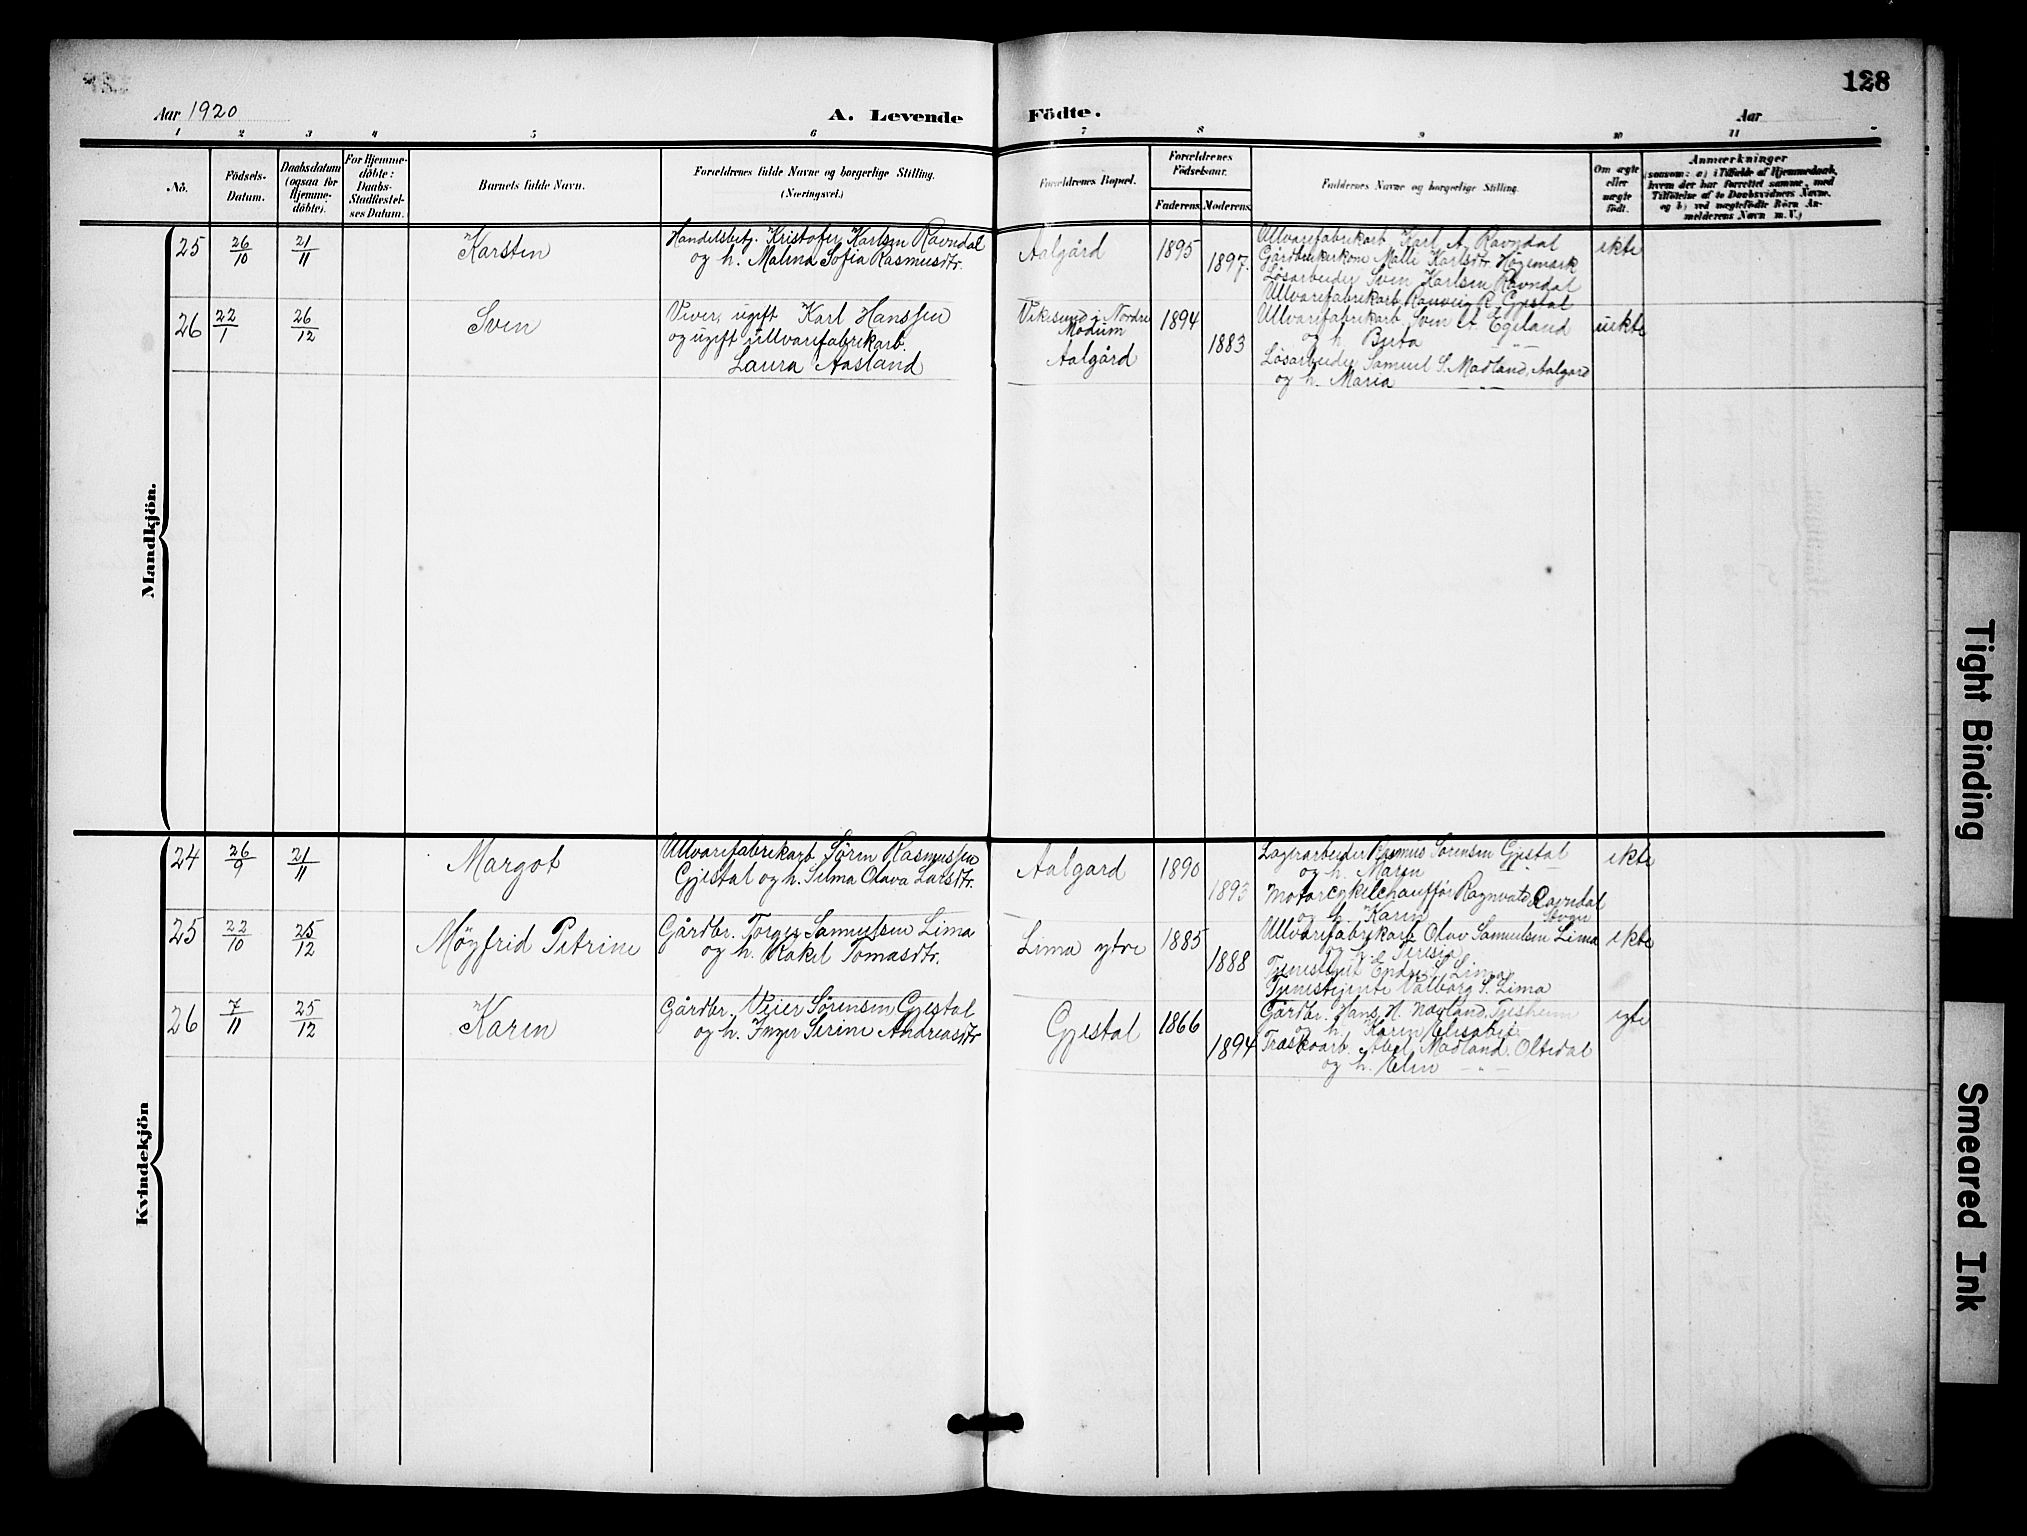 128
Aar 1920
A. Levende Födte.
Aar
1 2 3 4 5 6 7 8 9 10 11
No. Födsels-Datum. Daabsdatum (ogsaa for Hjemme-döbte). For Hjemme-döbte: Daabs-Stadfæstel-ses Datum. Barnets fulde Navn. Forældrenes fulde Navne og borgerlige Stilling. (Næringsvei.) Forældrenes Bopæl. Forældrenes Födselsaar. Faderens. Moderens. Faddernes Navne og borgerlige Stilling. Om ægte eller uægte født. Anmærkninger (saasom: a) i Tilfælde af Hjemmedaab, hvem der har forrettet samme, med Tilføielse af to Daabsvidners Navne, og b) ved uægtefødte Børn An-melderens Navn m. V.)
Mandkjön.
25 26/10 21/11 Karsten
Handelsbetj. Kristofer Karlsen Ravndal
og h. Malena Sofia Rasmusdtr.
Aalgård 1895 1897.
Ullvarefabrikarb. Karl A. Ravndal
Gårdbrukerkone Malli Karlsdtr. Høgemark
Løsarbeider Sven Karlsen Ravndal
Ullvarefabrikarb. Ranveig R. Gjestal
ekte
26 22/1 26/12 Sven
Vever, ugift Karl Hanssen
og ugift ullvarefabrikarb.
Laura Aasland
Vikesund i Nordre
Modum
Aalgård
1894 1883
Ullvarefabrikarb. Sven A. Egeland
og h. Berta — " —
Løsarbeider Samuel S. Madland, Aalgard
og h. Maria — " —
uekte
Kvindekjön
24 26/9 21/11 Margot
Ullvarefabrikarb. Søren Rasmussen
Gjestal og h. Selma Olava Larsdtr.
Aalgard 1890 1893
Lagerarbeider Rasmus Sørensen Gjestal
og h. Maren
Motorcykelchauffør Ragnvald Ravndal
og h. Karin
ekte
25 22/10 25/12 Möyfrid Petrine
Gårdbr. Torger Samuelsen Lima
og h. Rakel Tomasdtr.
Lima ytre 1885 1888
Ullvarefabrikarb. Olav Samuelsen Lima
og h. Teresia
Tjenestegut Endre S. Lima
Tjenestejente Valborg S. Lima
ekte
26 7/11 25/12 Karen
Gårdbr. Veier Sørensen Gjestal
og h. Inger Serine Andreasdtr
Gjestal 1866 1894
Gårdbr. Hans H. Nævland, Tjesheim
og h. Karen Elisabet
Træskoarb. Abel Madland. Oltedal
og h. Elen — " —
Tight Binding
Smeared Ink